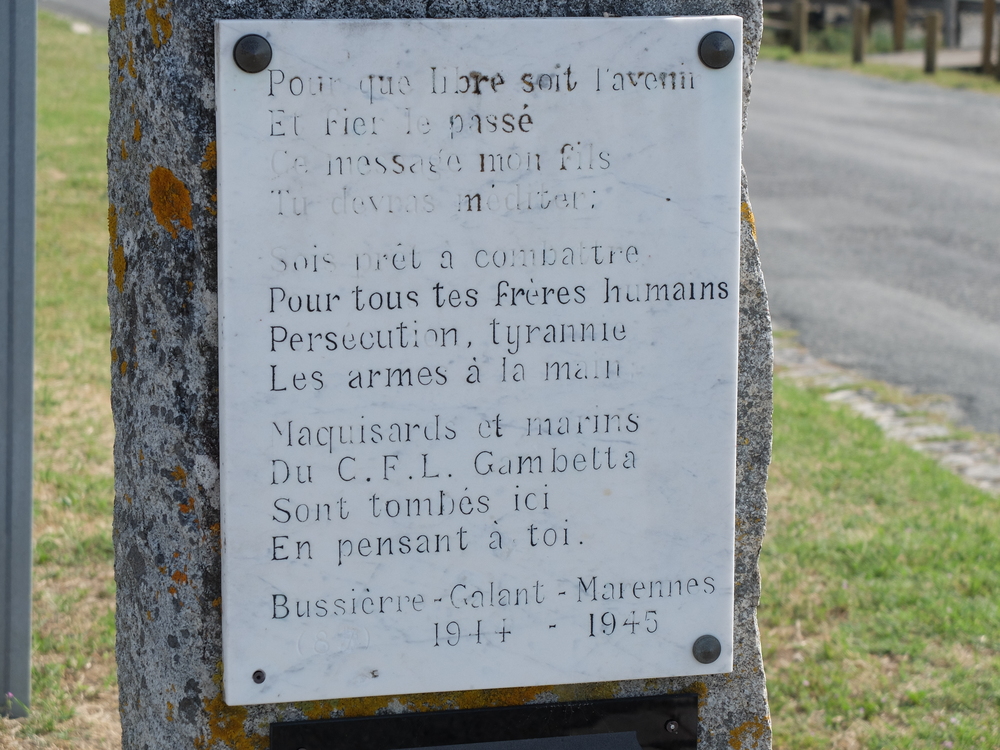 Pour que libre soit l'avenir
Et fier le passé
Ce message mon fils
Tu devras méditer:
Sois prêt à combattre
Pour tous tes frères humains
Persécution, tyrannie
Les armes à la main
Maquisards et marins
Du C.F.L. Gambetta
Sont tombés ici
En pensant à toi.
Bussière-Galant - Marennes
(87) 1944 - 1945